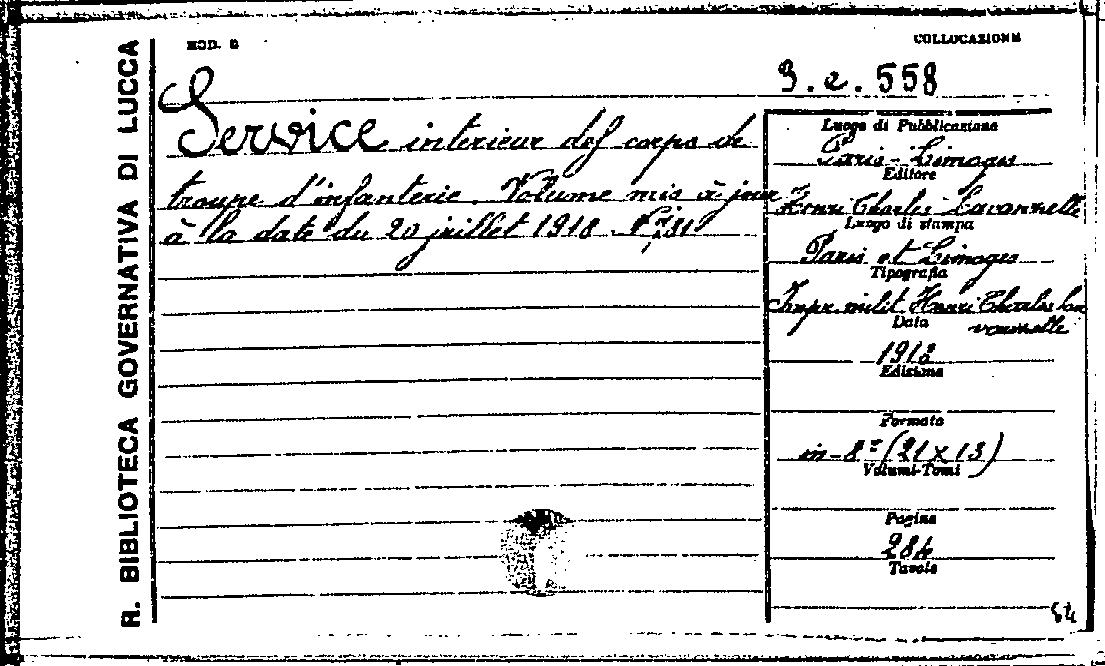 R. BIBLIOTECA GOVERNATIVA DI LUCCA
MOD. B
COLLOCAZIONE
3. e. 558
Service intérieur des corps de
troupe d'infanterie. Volume mis à jour
à la date du 20 juillet 1918
Luogo di Pubblicazione
Paris - Limoges
Editore
Henri Charles-Lavauzelle
Luogo di stampa
Paris et Limoges
Tipografia
Impr. milit. Henri Charles Lavauzelle
Data
1918
Edizione
Formato
in-8° (21 x 13)
Volumi-Tomi
Pagine
284
Tavole